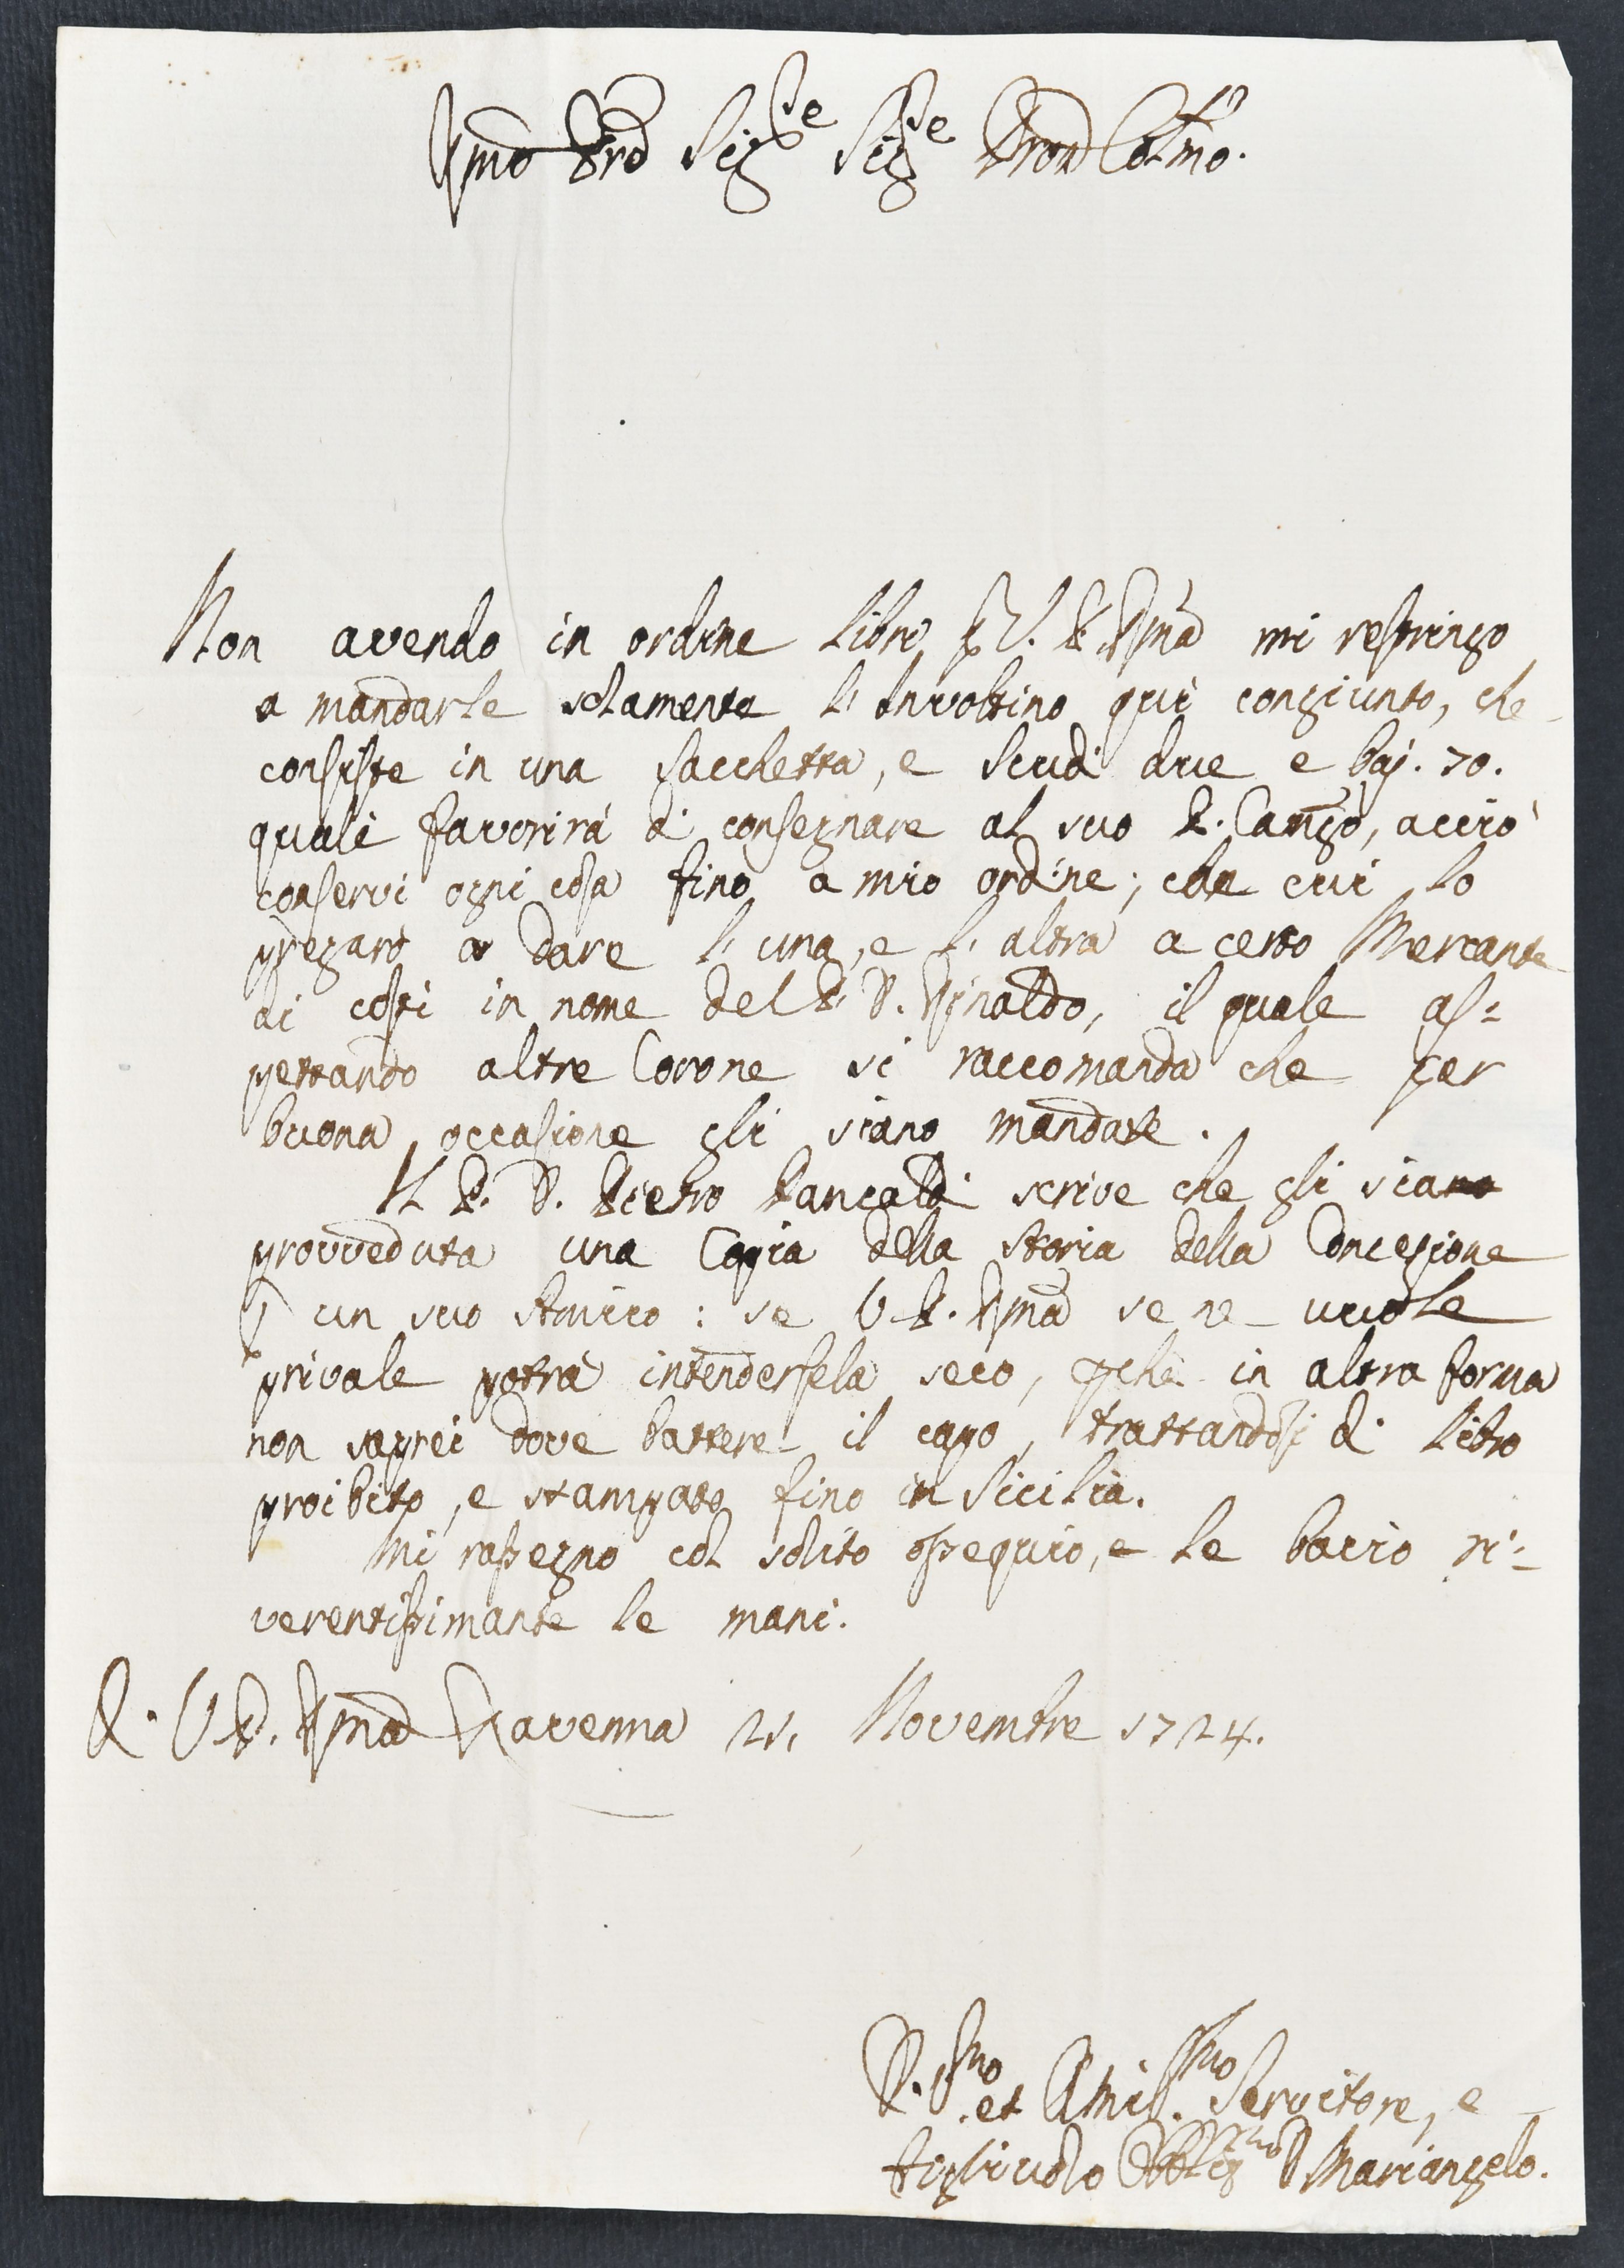 Rmo Prd Sigre Sigre Pron Colmo.
Non avendo in ordine libri p V. P. Rma mi restringo
a mandarle solamente l'Involtino quì congiunto, che
consiste in una sacchetta, e Scudi due e baj. 70.
quali favorirà di consegnare al suo P. acciò
conservi ogni cosa fino a mio ordine; che cui lo
pregarò a dare l'una, e l'altra a certo Mercante
di costì in nome del P. D. Rinaldo, il quale as=
pettando altre Corone si raccomanda che per
buona occasione gli siano mandate.
Il P. D. Pietro Pancaldi scrive che gli sia
provveduta una Copia della storia della Concezione
p un suo Amico: se V. P. Rma se ne vuole
privale potrà intendersela seco, pche in altra forma
non saprei dove battere il capo, trattandosi di libro
proibito, e stampato fino in Sicilia.
Mi rassegno col solito ossequio, e le bacio ri=
verentissimante le mani.
D. V. P. Rma Ravenna 21. Novembre 1724.
D.smo et Servitore, e
figliuolo Obbligmo D Mariangelo.